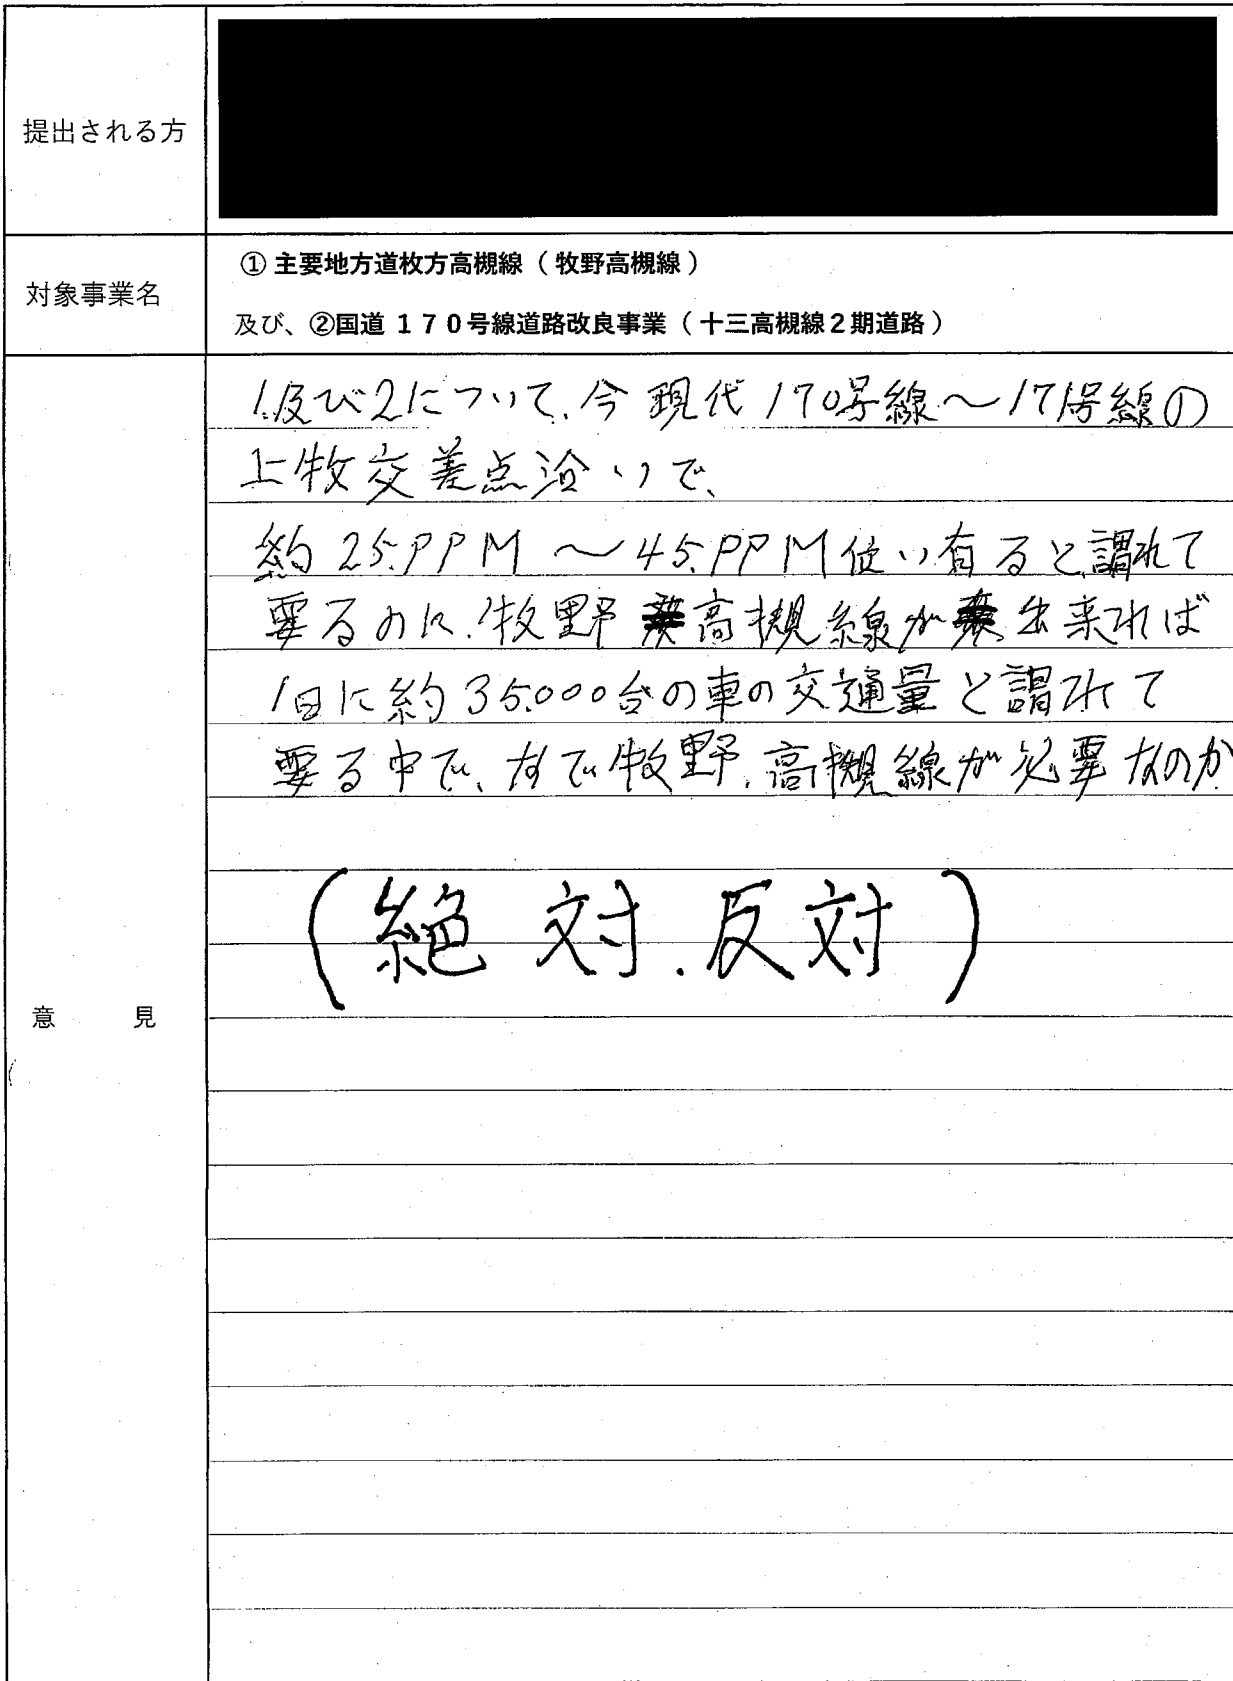 提出される方
対象事業名
① 主要地方道枚方高槻線（牧野高槻線）
及び、②国道１７０号線道路改良事業（十三高槻線２期道路）
意見
1.及び2について、今現代170号線〜171号線の
上牧交差点沿いで、
約25.PPM〜45.PPM位い有ると謂れて
要るのに、牧野高槻線が出来れば
1日に約35.000台の車の交通量と謂れて
要る中で、なで牧野、高槻線が必要なのか
(絶対.反対)